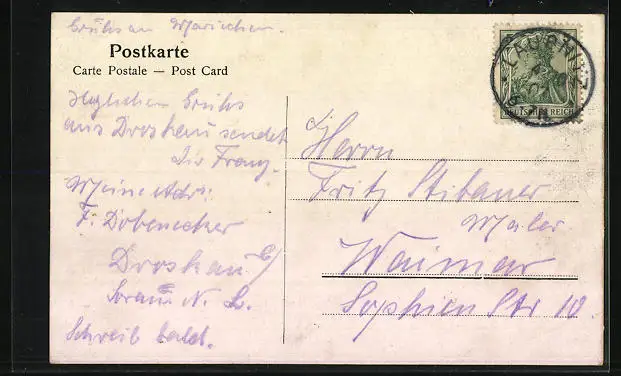 Gruß an Mariechen.
Postkarte
Carte Postale — Post Card
Herzlichen Gruß
aus Droskau sendet
Dir Franz.
Meine Adr:
F. Dobenecker
Droskau
Sorau N. L.
Schreib bald.
DEUTSCHES REICH
Herrn
Fritz Stibaner
Maler
Weimar
Sophien Str 10.